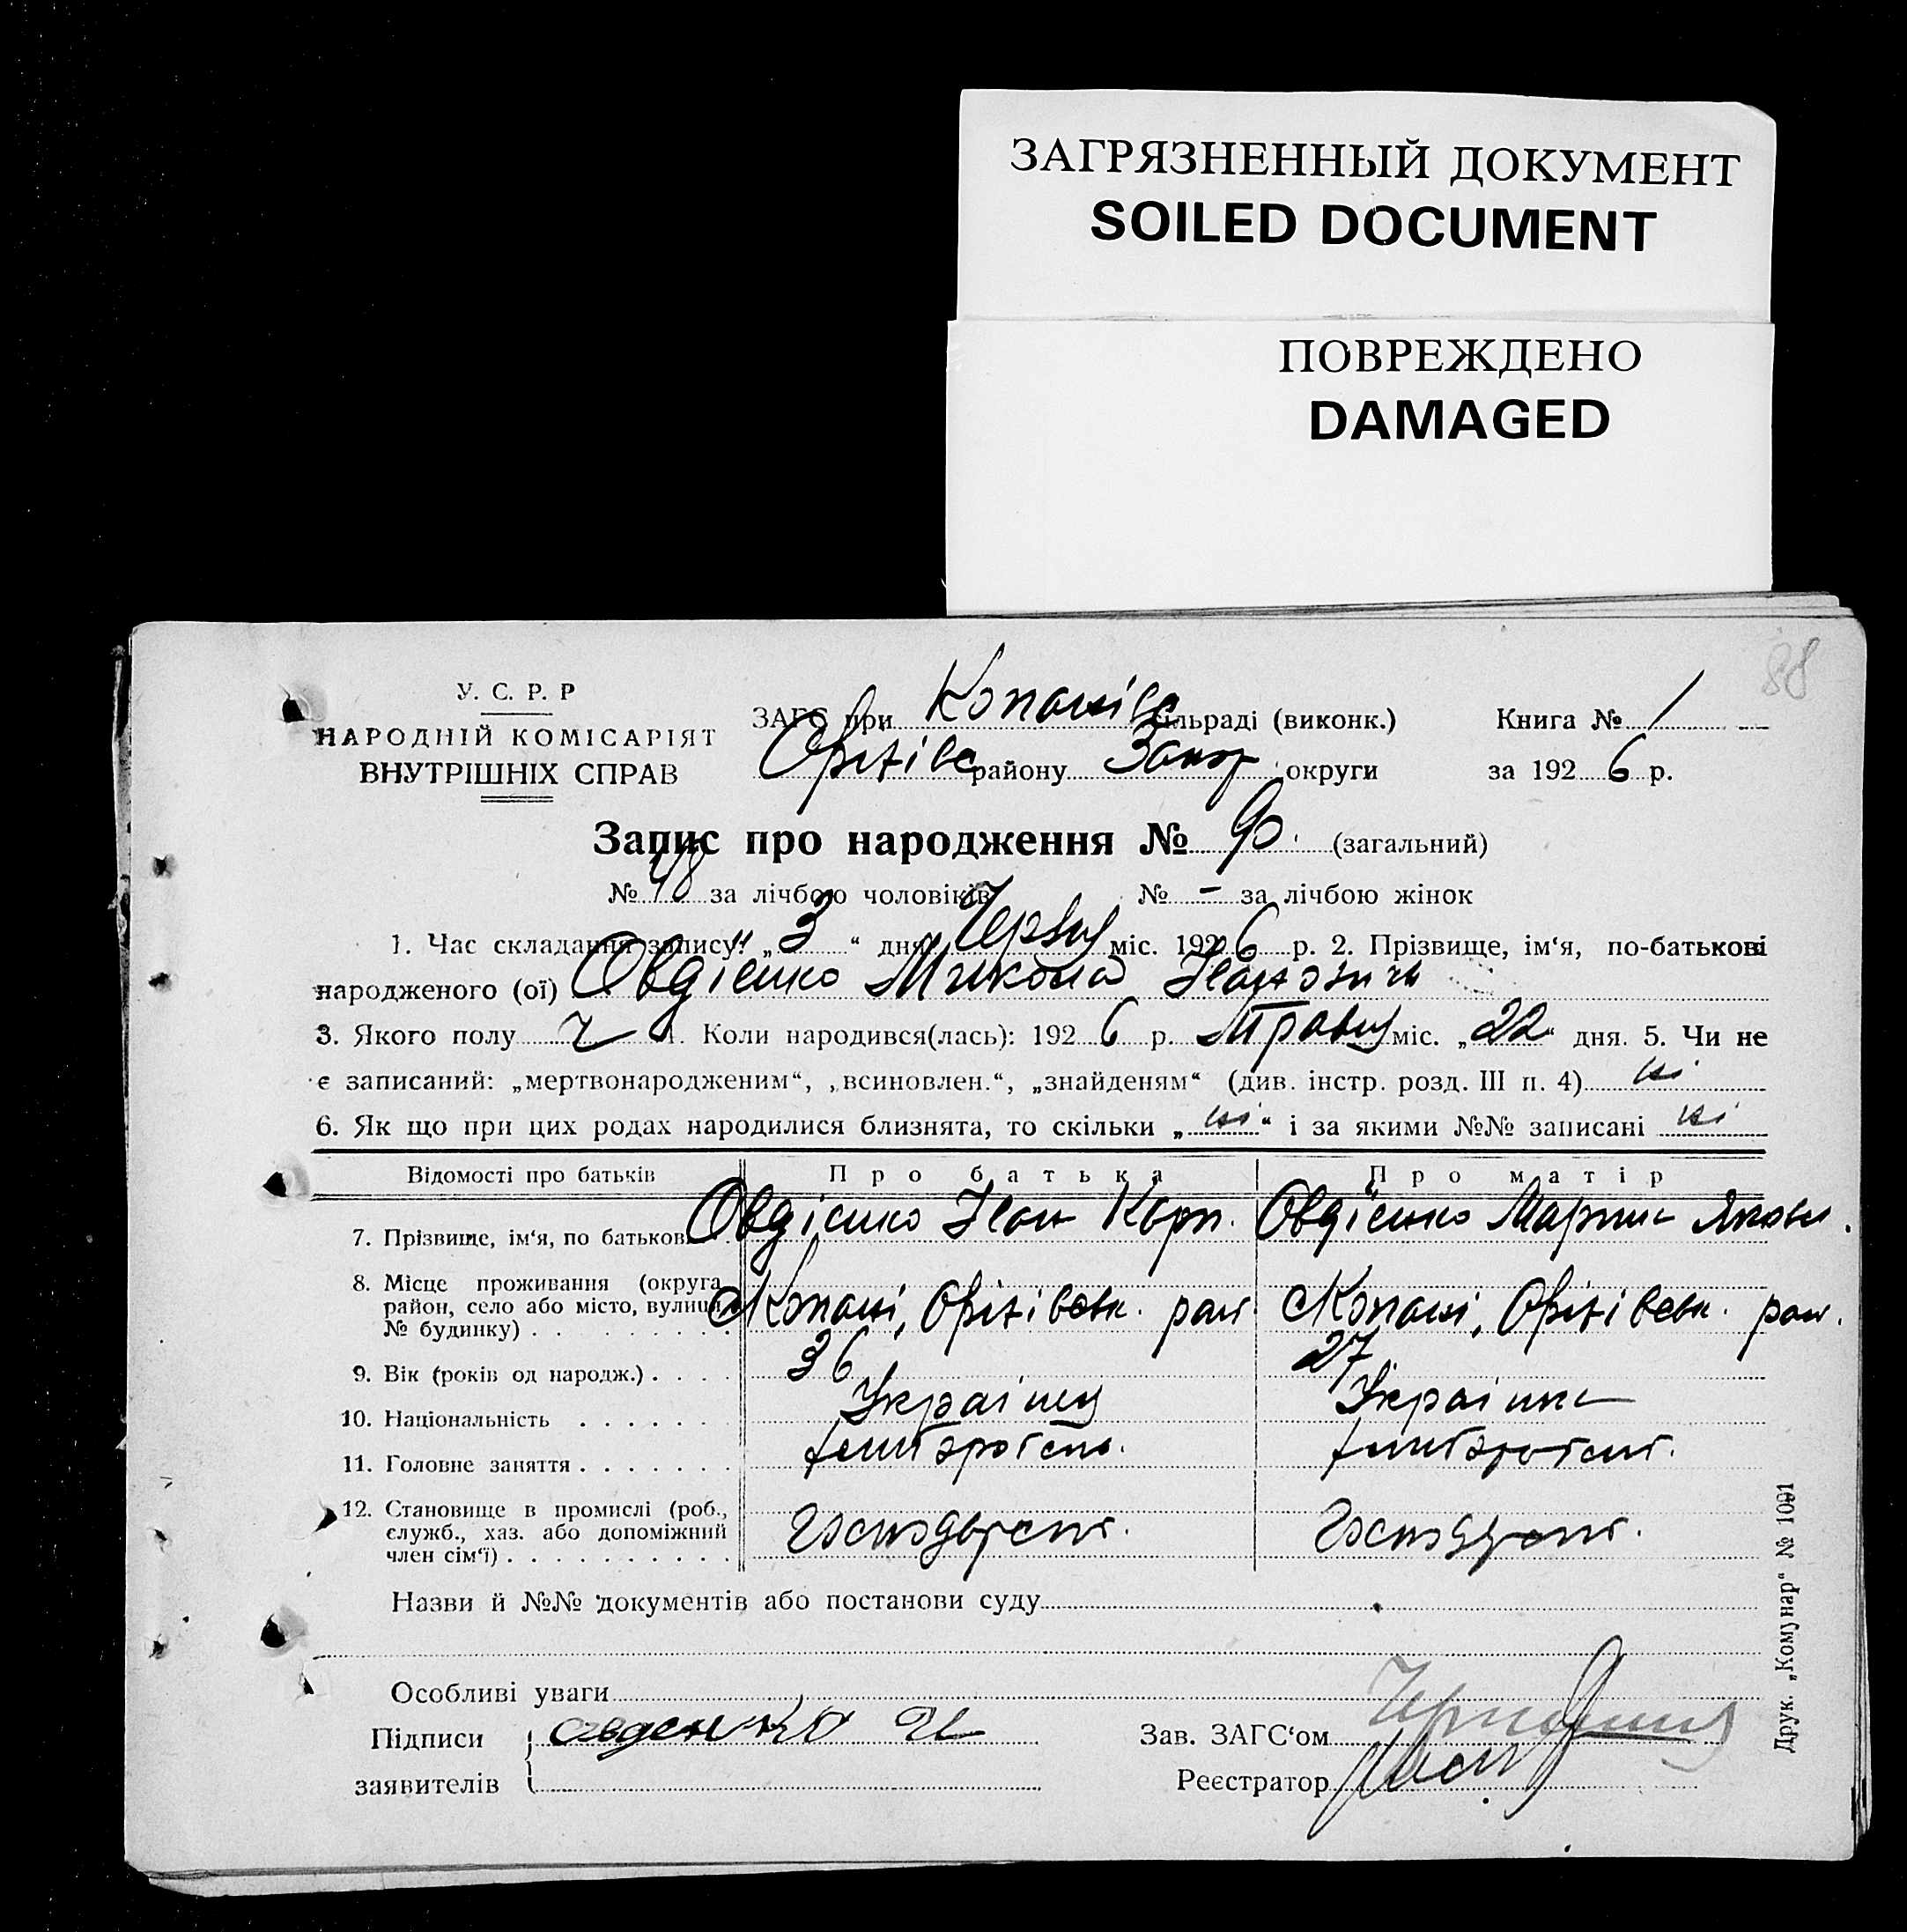 ЗАГРЯЗНЕННЫЙ ДОКУМЕНТ
SOILED DOCUMENT
ПОВРЕЖДЕНО
DAMAGED
88
У. С. Р. Р
НАРОДНІЙ КОМІСАРІЯТ
ВНУТРІШНІХ СПРАВ
ЗАГС при Копанівс сільраді (виконк.) Книга № 1
Оріхівс району Запор округи за 1926 р.
Запис про народження № 90. (загальний)
№ 48 за лічбою чоловіків № - за лічбою жінок
1. Час складання запису: „3“ дня Червня міс. 1926 р. 2. Прізвище, ім‘я, по-батькові
народженого (ої) Овдієнко Микола Іванович
3. Якого полу ч 4. Коли народився(лась): 1926 р. Травня міс. „22“ дня. 5. Чи не
є записаний: „мертвонародженим“, „всиновлен.“, „знайденям“ (див. інстр. розд. III п. 4) ні
6. Як що при цих родах народилися близнята, то скільки „ні“ і за якими №№ записані ні
Відомості про батьків Про батька Про матір
7. Прізвище, ім‘я, по батькові Овдієнко Іван Карп. Овдієнко Марина Яковл.
8. Місце проживання (округа, район, село або місто, вулиця, № будинку) с Копані, Оріхівськ. рай с Копані, Оріхівськ. рай.
9. Вік (років од народж.) 36 27
10. Національність Українец Українка
11. Головне заняття
12. Становище в промислі (роб., служб., хаз. або допоміжний член сім‘ї)
Назви й №№ документів або постанови суду
Особливі уваги
Підписи заявителів Овденко И
Зав. ЗАГС‘ом
Реєстратор
Друк. „Комунар“ № 1001